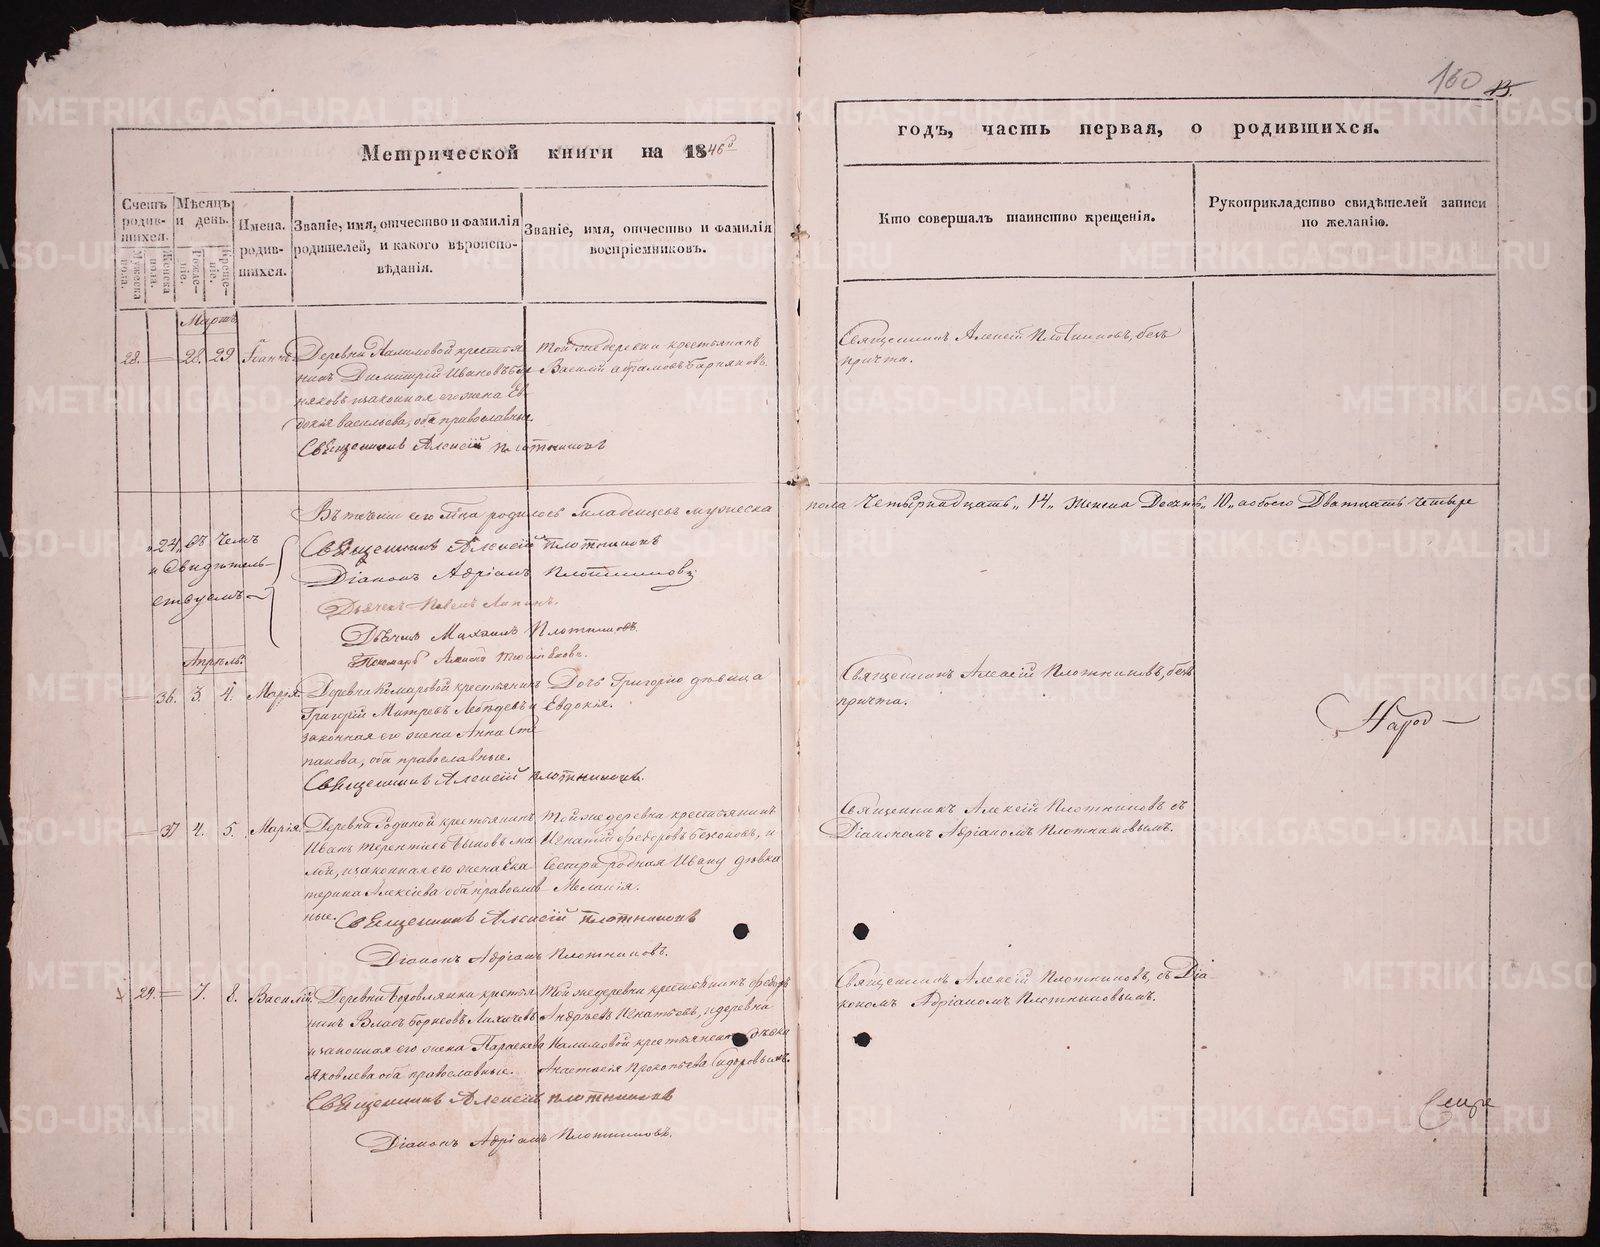 160
15.
Метрической книги на 1846й
годъ, часть первая, о родившихся.
Счетъ родив-шихся.
Мужеска пола.
Женска пола.
Мѣсяцъ и день.
Рожде-ніе.
Креще-ніе.
Имена. родив-шихся.
Званіе, имя, отчество и фамилія
родителей, и какого вѣроиспо-
вѣданія.
Званіе, имя, отчество и фамилія
воспріемниковъ.
Кто совершалъ таинство крещенія.
Рукоприкладство свидѣтелей записи
по желанію.
Мартъ
28. 28. 29 Іоаннъ
Деревни Налимовой крестья
нинъ Димитрій Ивановъ
няковъ и законная его жена Ев-
докія Васильева, оба православные.
Священникъ Алексій Плотниковъ
Той же деревни крестьянинъ
Василій
Священникъ Алексій Плотниковъ, безъ
причта.
Въ теченіи сего м-ца родилось младенцевъ мужеска
пола Четырнадцать „14„ женска Десять „10„ а обоего Двадцать четыре
„24„ въ чемъ
и свидѣтель-
ствуемъ
Священникъ Алексій Плотниковъ
Діаконъ Адріанъ Плотниковъ
Дьячекъ Павелъ Лапинъ.
Дьячекъ Михаилъ Плотниковъ
Пономарь
Апрѣль.
36. 3. 4. Марія.
Деревни Комаровой крестьянинъ
Григорій Митревъ Лебедевъ и
законная его жена Анна Сте
панова, оба православные.
Священникъ Алексій Плотниковъ.
Дочь Григорію дѣвица
Евдокія.
Священникъ Алексій Плотниковъ, безъ
причта.
Народ
37 4. 5. Марія.
Деревни Родиной крестьянинъ
Иванъ Терентьевъ Быковъ ма
лой, и законная его жена Ека
терина Алексіева оба православ-
ные.
Священникъ Алексій Плотниковъ
Діаконъ Адріанъ Плотниковъ.
Той же деревни крестьянинъ
Игнатій Федоровъ и
Сестра родная Ивану дѣвка
Меланія.
Священникъ Алексій Плотниковъ съ
Діакономъ Адріаномъ Плотниковымъ.
29. 7. 8. Василій.
Деревни Боровлянки крестья
нинъ Власъ Борисовъ Лихачевъ
и законная его жена Параскева
Яковлева оба православные.
Священникъ Алексій Плотниковъ
Діаконъ Адріанъ Плотниковъ.
Той же деревни крестьянинъ Федоръ
Андреевъ Игнатьевъ, и деревни
Налимовой крестьянская дѣвка
Анастасія Прокопьева Сидоровыхъ.
Священникъ Алексій Плотниковъ, съ Діа
кономъ Адріаномъ Плотниковымъ.
METRIKI.GASO-URAL.RU